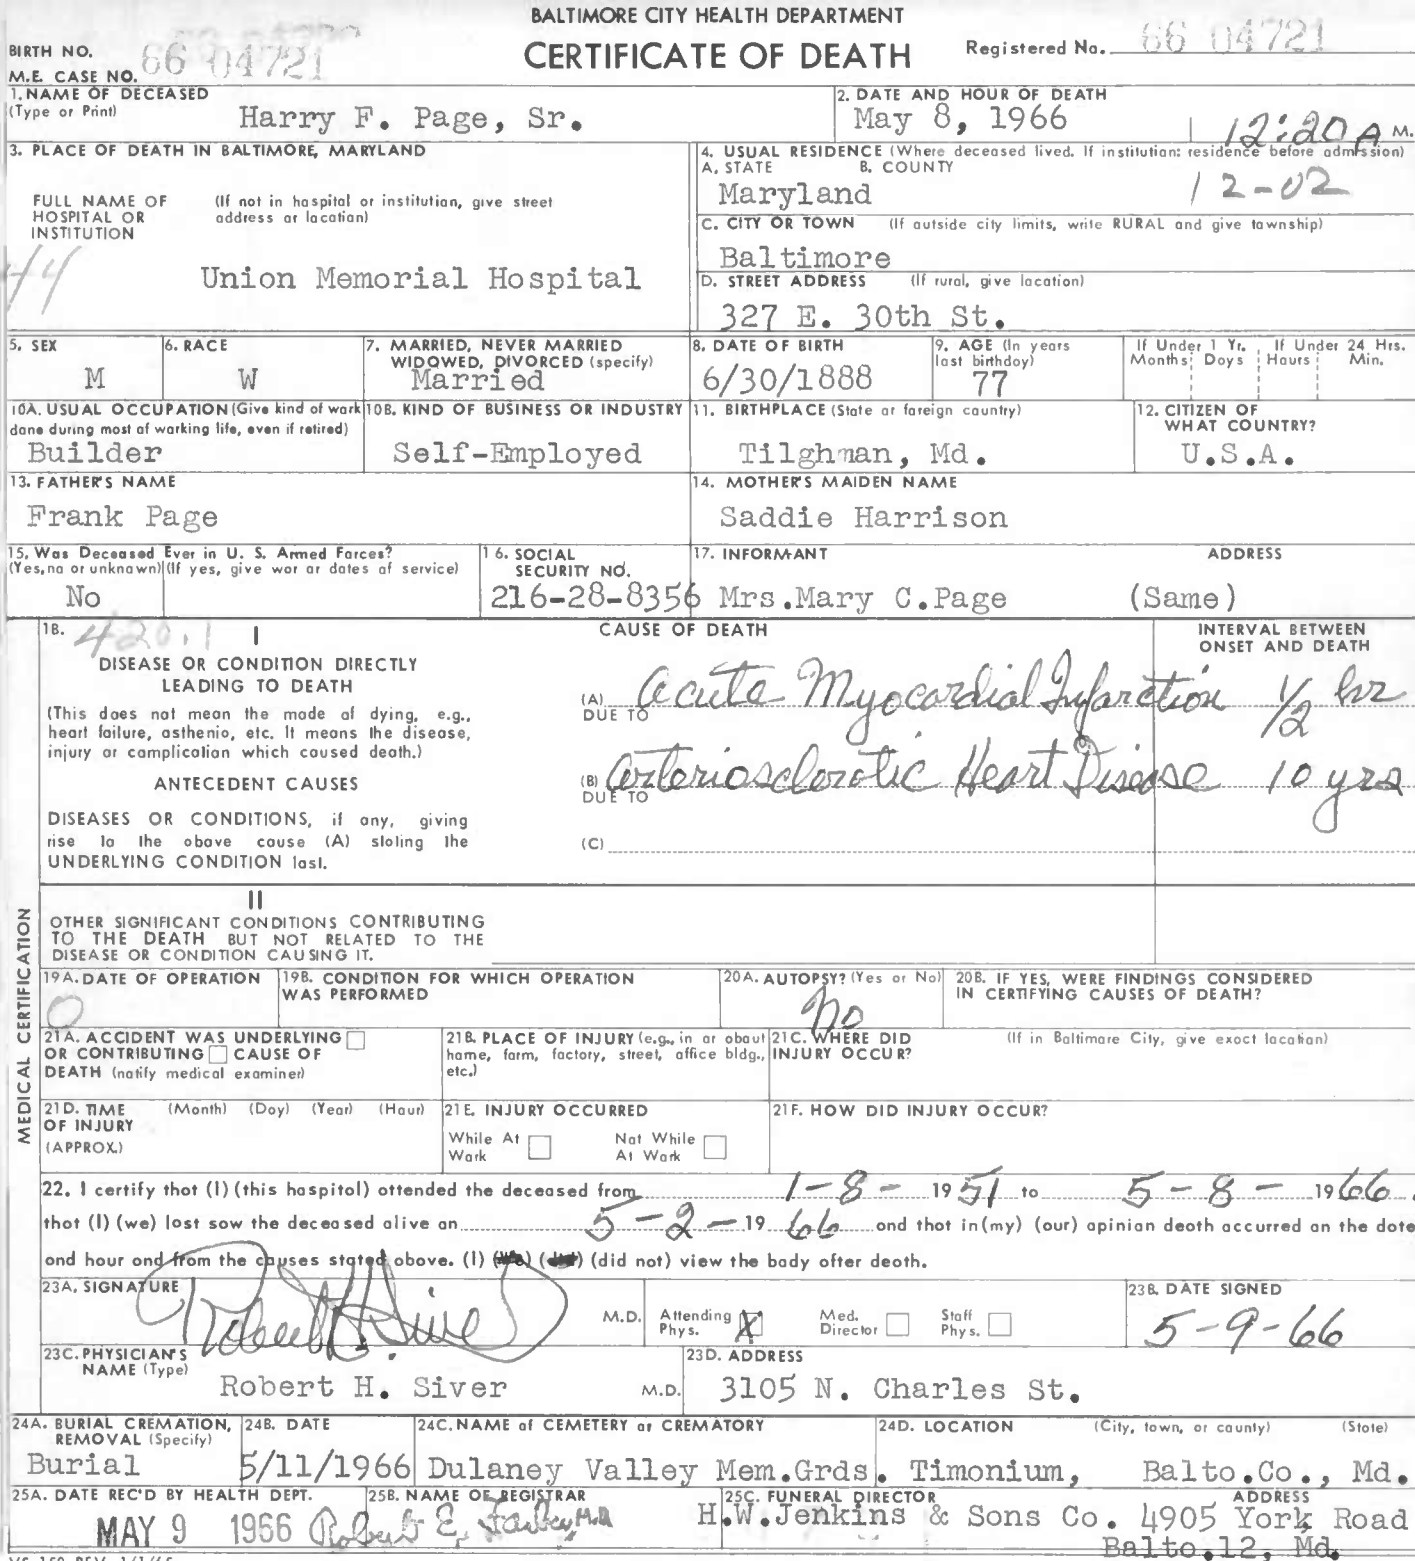 BALTIMORE CITY HEALTH DEPARTMENT
CERTIFICATE OF DEATH
BIRTH NO.
M.E. CASE NO. 66 04721
Registered No. 66 04721
1. NAME OF DECEASED
(Type or Print) Harry F. Page, Sr.
2. DATE AND HOUR OF DEATH
May 8, 1966 12:20 A M.
3. PLACE OF DEATH IN BALTIMORE, MARYLAND
FULL NAME OF HOSPITAL OR INSTITUTION (If not in hospital or institution, give street address or location)
44
Union Memorial Hospital
4. USUAL RESIDENCE (Where deceased lived. If institution: residence before admission)
A. STATE B. COUNTY
Maryland 12-02
C. CITY OR TOWN (If outside city limits, write RURAL and give township)
Baltimore
D. STREET ADDRESS (If rural, give location)
327 E. 30th St.
5. SEX
M
6. RACE
W
7. MARRIED, NEVER MARRIED
WIDOWED, DIVORCED (specify)
Married
8. DATE OF BIRTH
6/30/1888
9. AGE (In years
last birthday)
77
If Under 1 Yr.
Months Days
If Under 24 Hrs.
Hours Min.
10A. USUAL OCCUPATION (Give kind of work
done during most of working life, even if retired)
Builder
10B. KIND OF BUSINESS OR INDUSTRY
Self-Employed
11. BIRTHPLACE (State or foreign country)
Tilghman, Md.
12. CITIZEN OF
WHAT COUNTRY?
U.S.A.
13. FATHER'S NAME
Frank Page
14. MOTHER'S MAIDEN NAME
Saddie Harrison
15. Was Deceased Ever in U. S. Armed Forces?
(Yes, no or unknown) (If yes, give war or dates of service)
No
16. SOCIAL
SECURITY NO.
216-28-8356
17. INFORMANT ADDRESS
Mrs.Mary C.Page (Same)
MEDICAL CERTIFICATION
18. 420.1 I
CAUSE OF DEATH
INTERVAL BETWEEN
ONSET AND DEATH
DISEASE OR CONDITION DIRECTLY
LEADING TO DEATH
(This does not mean the mode of dying, e.g.,
heart failure, asthenia, etc. It means the disease,
injury or complication which caused death.)
(A) Acute Myocardial Infarction 1/2 hr
DUE TO
ANTECEDENT CAUSES
(B) Arteriosclerotic Heart Disease 10 yrs
DUE TO
DISEASES OR CONDITIONS, if any, giving
rise to the above cause (A) stating the
UNDERLYING CONDITION last.
(C)
II
OTHER SIGNIFICANT CONDITIONS CONTRIBUTING
TO THE DEATH BUT NOT RELATED TO THE
DISEASE OR CONDITION CAUSING IT.
19A. DATE OF OPERATION
0
19B. CONDITION FOR WHICH OPERATION
WAS PERFORMED
20A. AUTOPSY? (Yes or No)
No
20B. IF YES, WERE FINDINGS CONSIDERED
IN CERTIFYING CAUSES OF DEATH?
21A. ACCIDENT WAS UNDERLYING
OR CONTRIBUTING CAUSE OF
DEATH (notify medical examiner)
21B. PLACE OF INJURY (e.g., in or about
home, farm, factory, street, office bldg.,
etc.)
21C. WHERE DID
INJURY OCCUR?
(If in Baltimore City, give exact location)
21D. TIME (Month) (Day) (Year) (Hour)
OF INJURY
(APPROX.)
21E. INJURY OCCURRED
While At Work Not While At Work
21F. HOW DID INJURY OCCUR?
22. I certify that (I) (this hospital) attended the deceased from 1-8- 19 51 to 5-8- 19 66,
that (I) (we) last saw the deceased alive on 5-2- 19 66 and that in (my) (our) opinion death occurred on the date
and hour and from the causes stated above. (I) (We) (did) (did not) view the body after death.
23A. SIGNATURE
Robert H. Siver M.D.
Attending Phys. X Med. Director Staff Phys.
23B. DATE SIGNED
5-9-66
23C. PHYSICIAN'S
NAME (Type)
Robert H. Siver M.D.
23D. ADDRESS
3105 N. Charles St.
24A. BURIAL CREMATION,
REMOVAL (Specify)
Burial
24B. DATE
5/11/1966
24C. NAME of CEMETERY or CREMATORY
Dulaney Valley Mem.Grds.
24D. LOCATION (City, town, or county) (State)
Timonium, Balto.Co., Md.
25A. DATE REC'D BY HEALTH DEPT.
MAY 9 1966
25B. NAME OF REGISTRAR
Robert E. Farber, M.D.
25C. FUNERAL DIRECTOR ADDRESS
H.W.Jenkins & Sons Co. 4905 York Road
Balto.12, Md.